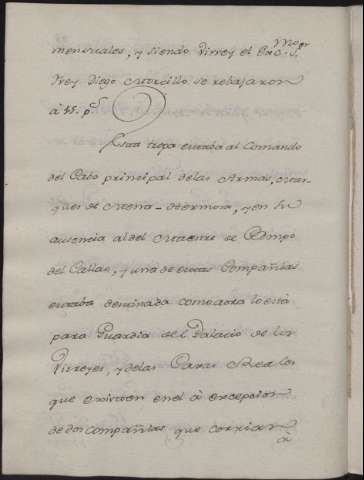 mensuales, y siendo Virrey el Exc.mo Sr
Frey Diego Morcillo se rebajaron
à 45. ps
Esta tropa estaba al Comando
del Cabo principal de las Armas, Mar-
ques de Mena-Hermosa, y en su
ausencia al del Maestre de Campo
del Callao, y una de estas Compañias
estaba destinada como aora lo está
para Guardia del Palacio de los
Virreyes, y de las Casas Rea les
que existen en el à excepcion
de dos compañias que corrian
a